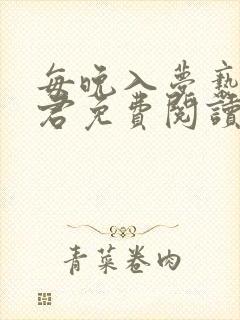 每晚入夢艷
君免費閱讀
青菜卷肉